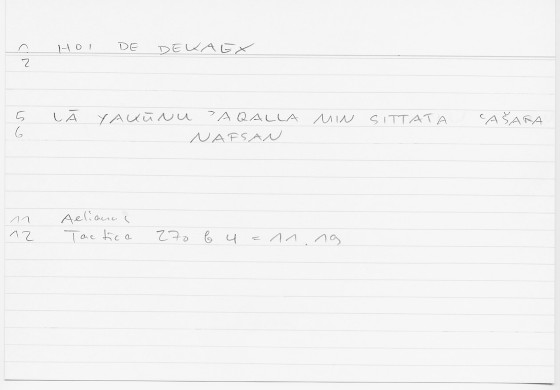 1 HOI DE DEKAEX
2
5 LĀ YAKŪNU ʾAQALLA MIN SITTATA ʿAŠARA
6 NAFSAN
11 Aeliani
12 Tactica 270 b 4 = 11.19